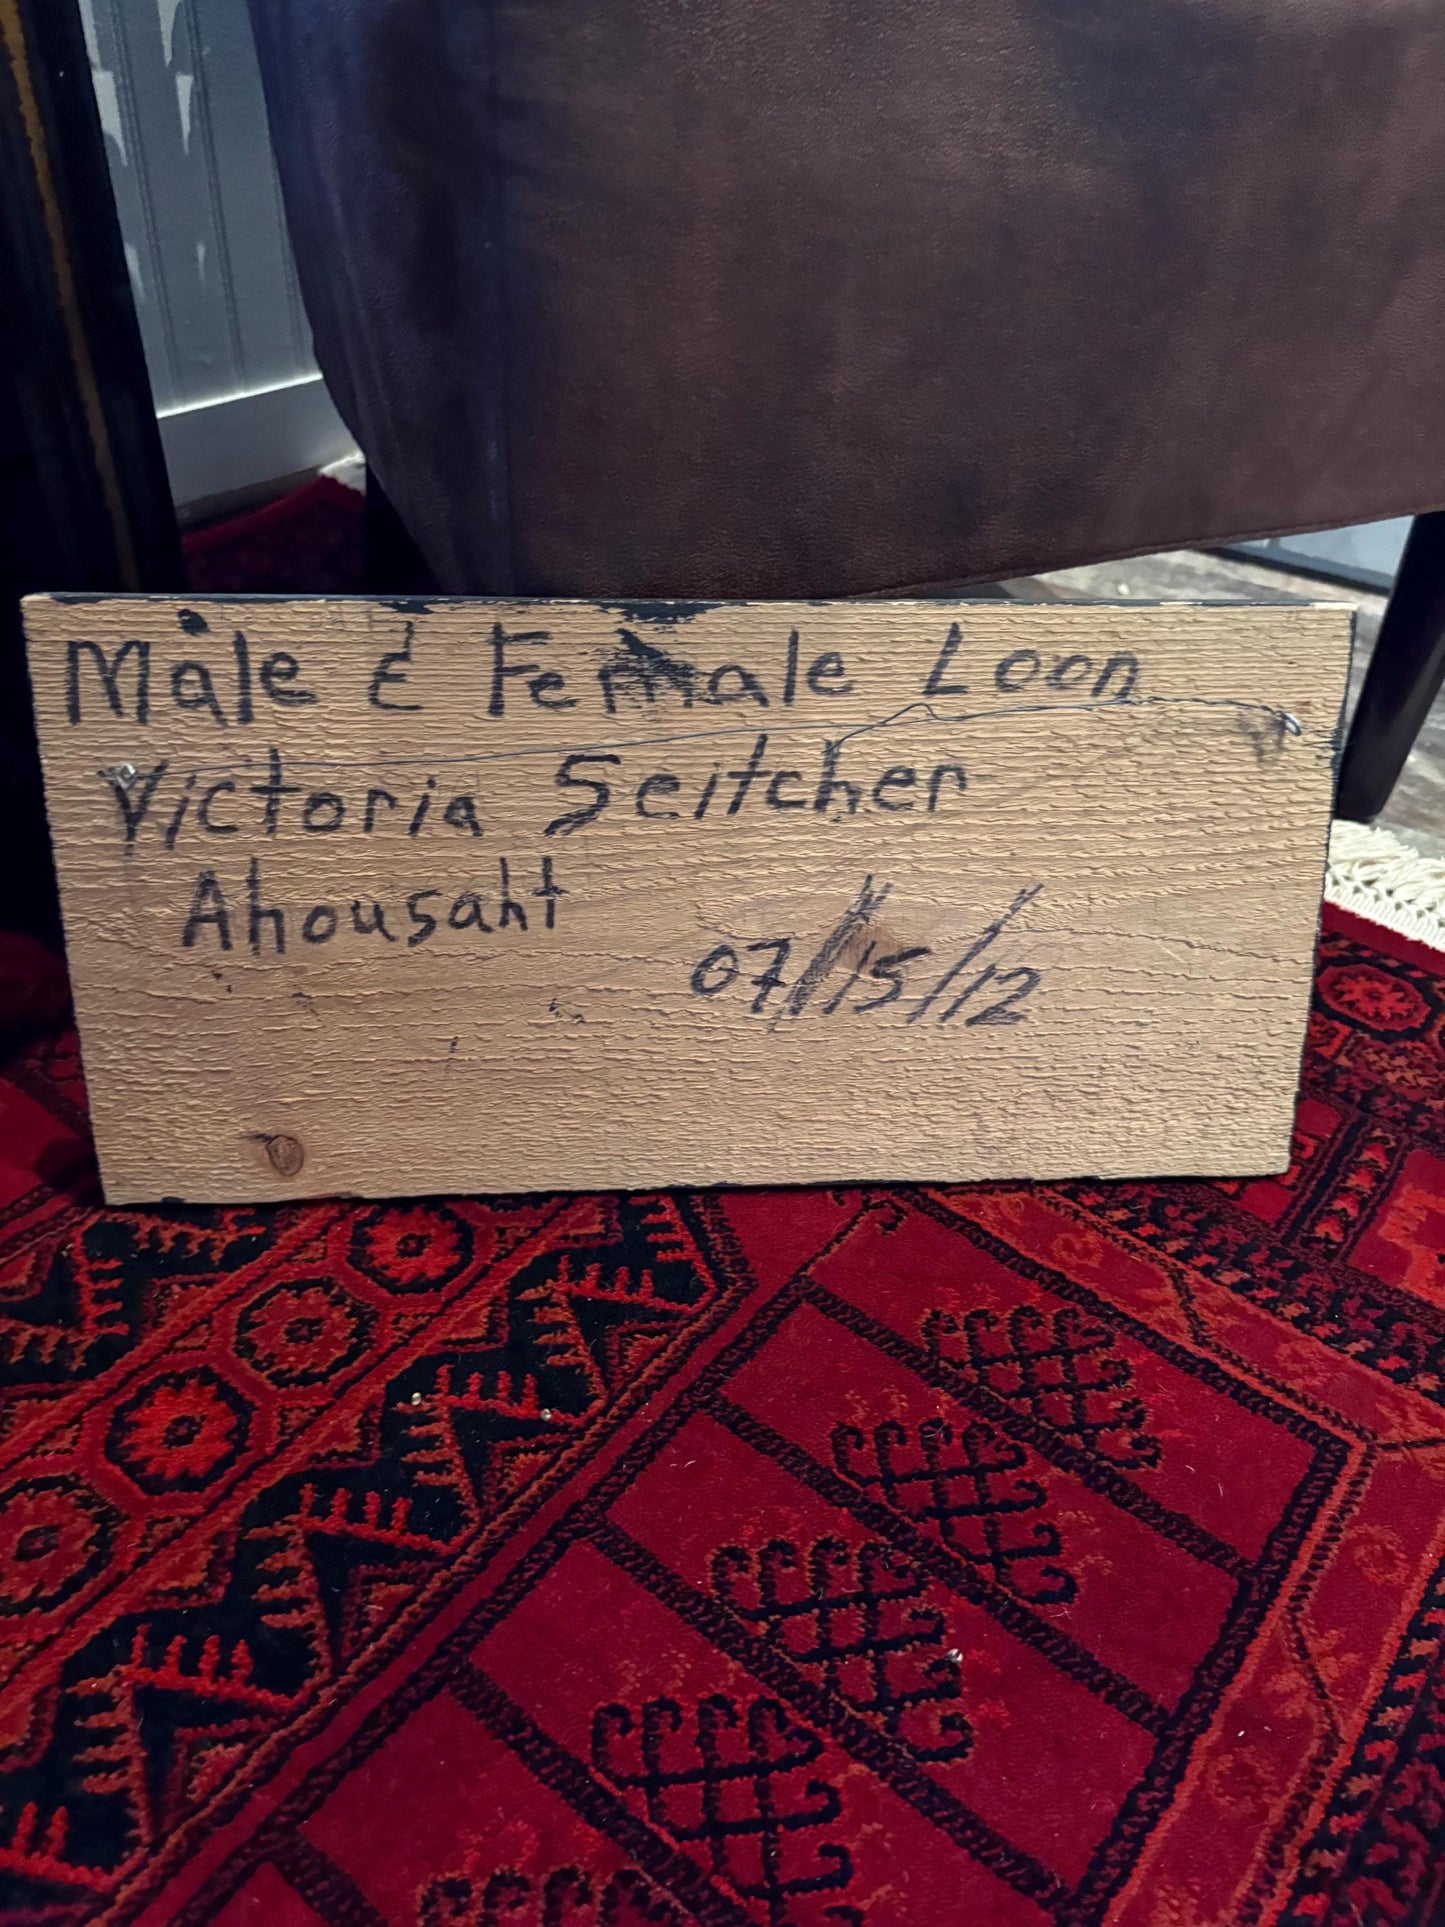 Male & Female Loon
Victoria Seitcher
Ahousaht
07/15/12